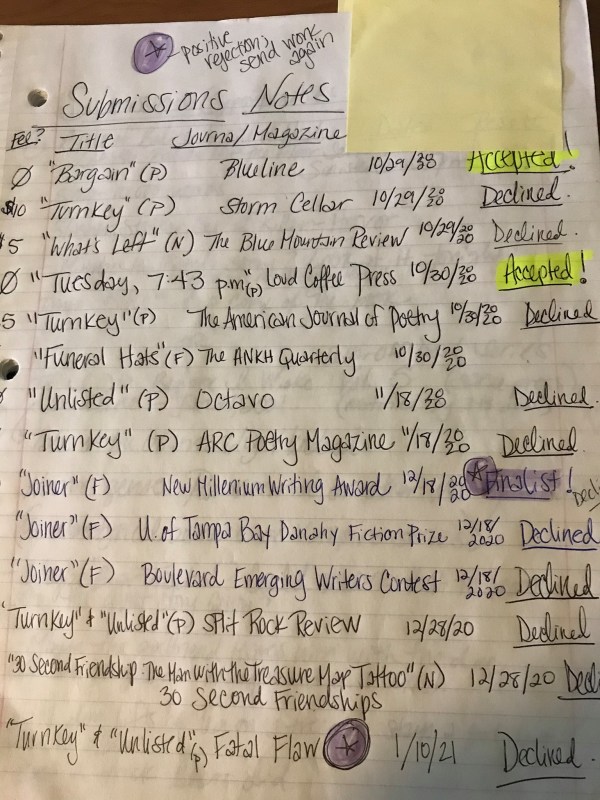 * positive
rejection;
send work
again
Submissions Notes
Fee? Title Journal/Magazine
Ø "Bargain" (P) Blueline 10/29/2020 Accepted!
$10 "Turnkey" (P) Storm Cellar 10/29/2020 Declined.
$5 "What's Left" (N) The Blue Mountain Review 10/29/2020 Declined.
Ø "Tuesday, 7:43 p.m." (P) Loud Coffee Press 10/30/2020 Accepted!
5 "Turnkey" (P) The American Journal of Poetry 10/30/2020 Declined
"Funeral Hats" (F) The ANKH Quarterly 10/30/2020
"Unlisted" (P) Octavo 11/18/2020 Declined.
"Turnkey" (P) ARC Poetry Magazine 11/18/2020 Declined.
"Joiner" (F) New Millenium Writing Award 12/18/2020 * Finalist! Decli
"Joiner" (F) U. of Tampa Bay Danahy Fiction Prize 12/18/2020 Declined
"Joiner" (F) Boulevard Emerging Writers Contest 12/18/2020 Declined
"Turnkey" & "Unlisted" (P) Split Rock Review 12/28/20 Declined
"30 Second Friendship: The Man with the Treasure Map Tattoo" (N) 12/28/20 Decli
30 Second Friendships
"Turnkey" & "Unlisted" (P) Fatal Flaw * 1/10/21 Declined.